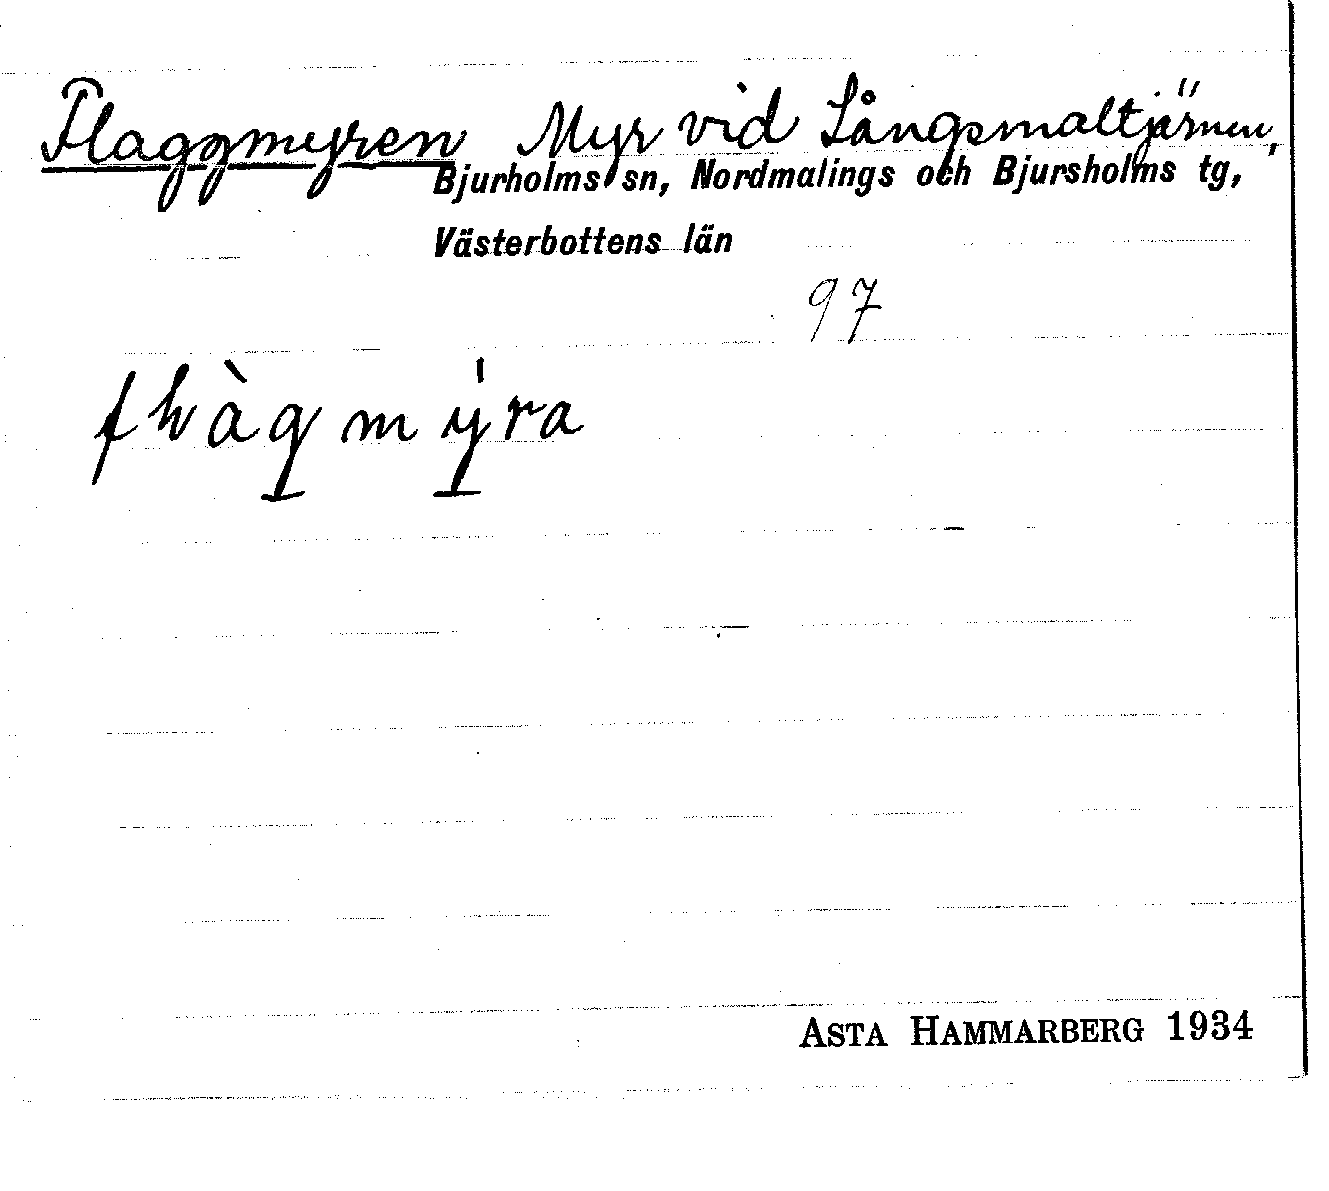 Flaggmyren Myr vid Långsmaltjärnen,
Bjurholms sn, Nordmalings och Bjursholms tg,
Västerbottens län
97
ASTA HAMMARBERG 1934